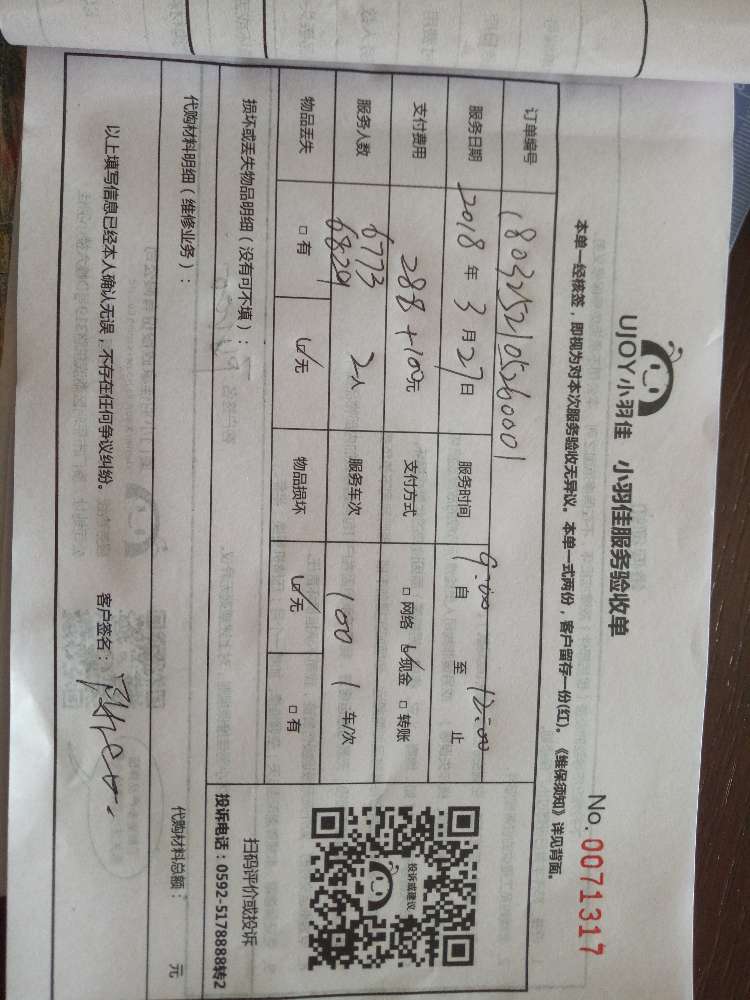 UJOY小羽佳 小羽佳服务验收单
No. 0071317
本单一经核签，即视为对本次服务验收无异议。本单一式两份，客户留存一份(红)。《维保须知》详见背面。
订单编号 1803252105260001
服务日期 2018 年 3 月 27 日 服务时间 9:00 自 至 12:00 止
支付费用 288+100元 支付方式 □ 网络 ☑现金 □ 转账
服务人数 6773 6829 2人 服务车次 100 1 车/次
物品丢失 □ 有 ☑无 物品损坏 ☑无 □ 有
投诉或建议
损坏或丢失物品明细（没有可不填）：
扫码评价或投诉
投诉电话：0592-5178888转2
代购材料明细（维修业务）：
代购材料总额： 元
以上填写信息已经本人确认无误，不存在任何争议纠纷。 客户签名：